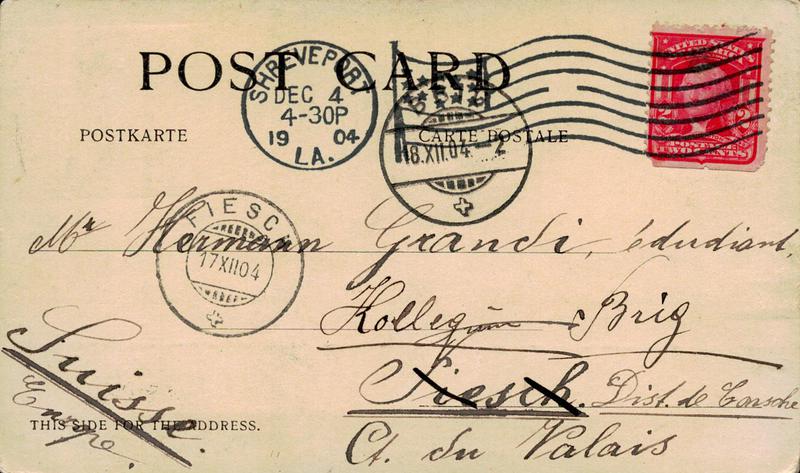 POST CARD
POSTKARTE
CARTE POSTALE
SHREVEPORT
DEC 4
4-30P
1904
LA.
UNITED STATES
POSTAGE
2 2
TWO CENTS
18.XII.04. 2
FIESCH
17XII04
Mr Hermann Grandi, étudiant,
Kollegium Brig
Fiesch. Dist. de Consche
Ct. du Valais
Suisse.
Europe.
THIS SIDE FOR THE ADDRESS.